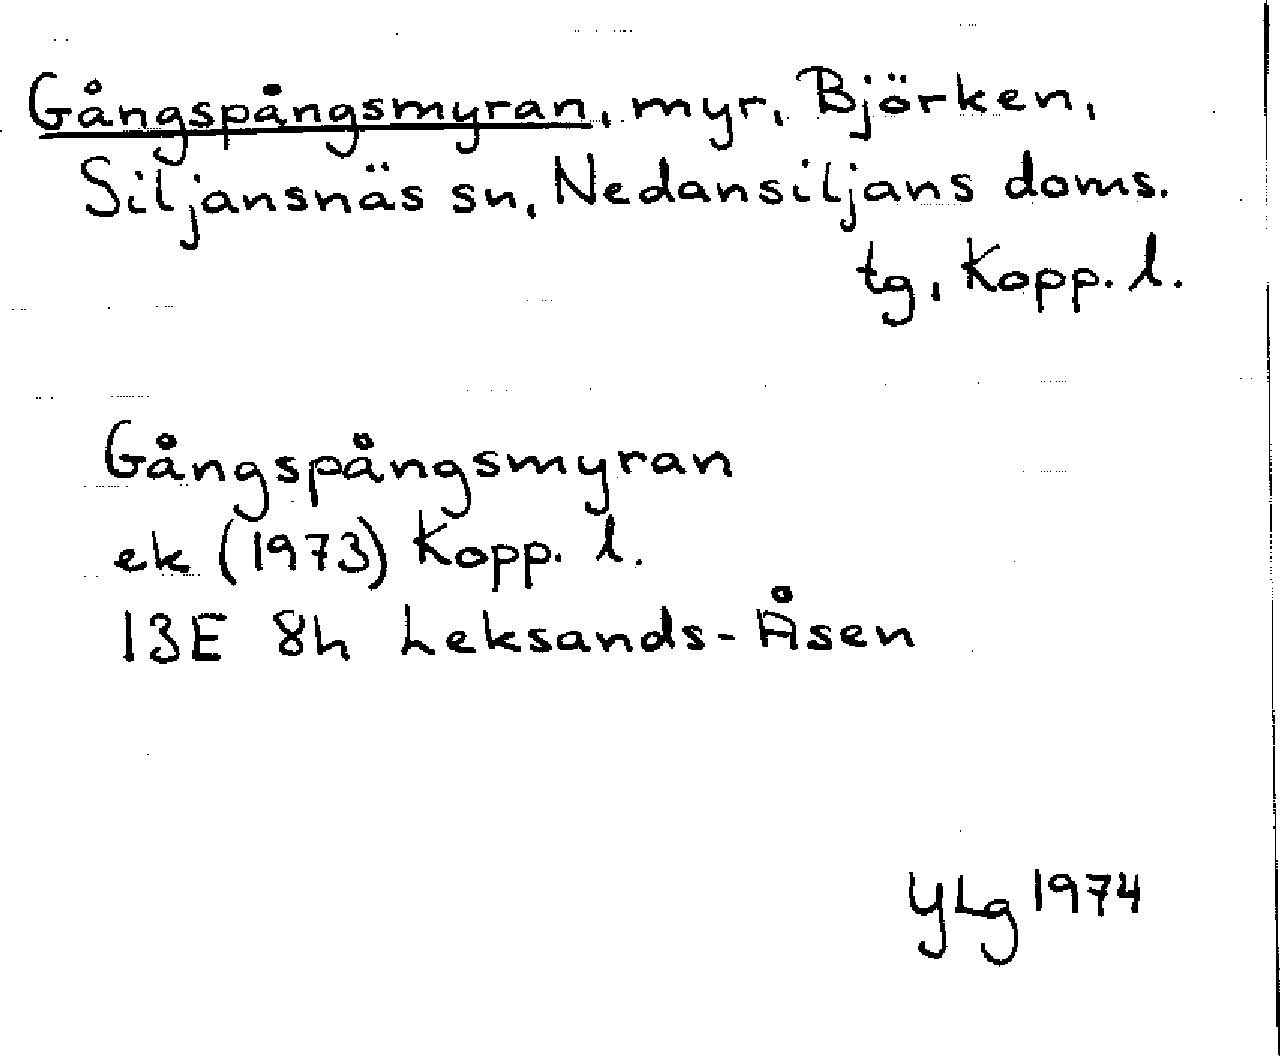 Gångspångsmyran, myr, Björken,
Siljansnäs sn, Nedansiljans doms.
tg, Kopp. l.
Gångspångsmyran
ek (1973) Kopp. l.
13E 8h Leksands-Åsen
YLg 1974